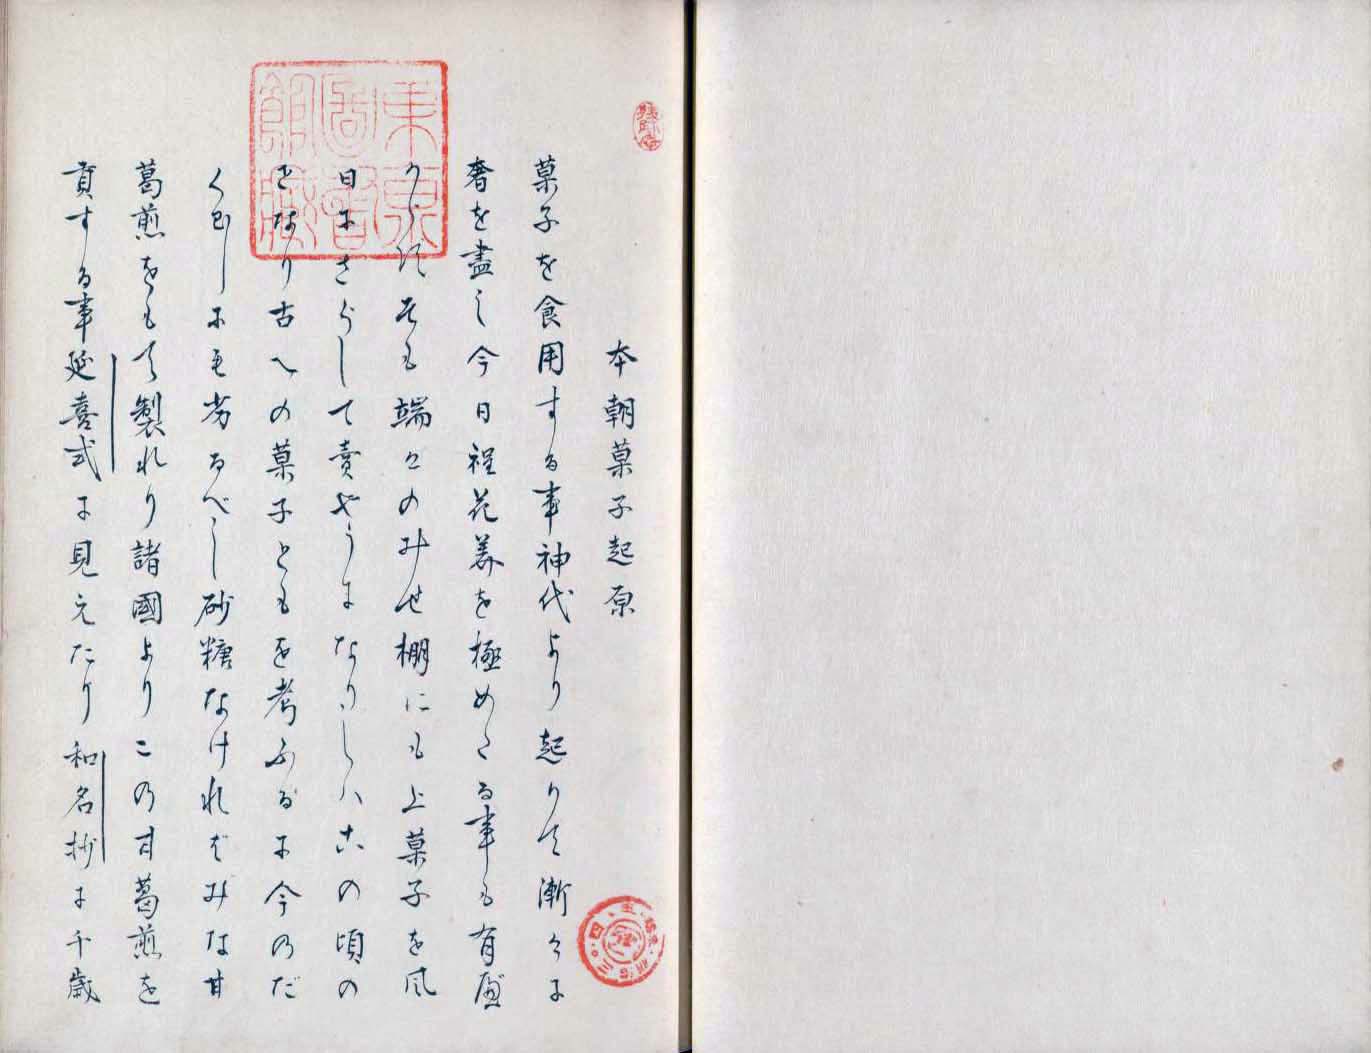 本朝菓子起原
菓子を食用する事神代より起りて漸々に
奢を盡し今日程花美を極めたる事も有
からす尤も端々のみせ棚にも上菓子を風
日にさらして賣やうになりしハこの頃の
となり古への菓子ともを考ふるに今のだ
くわしにも劣るべし砂糖なけれどみな甘
葛煎をもて製れり諸國よりこの甘葛煎を
貢する事延喜式に見えたり和名抄に千歳
東京
圖書
館藏